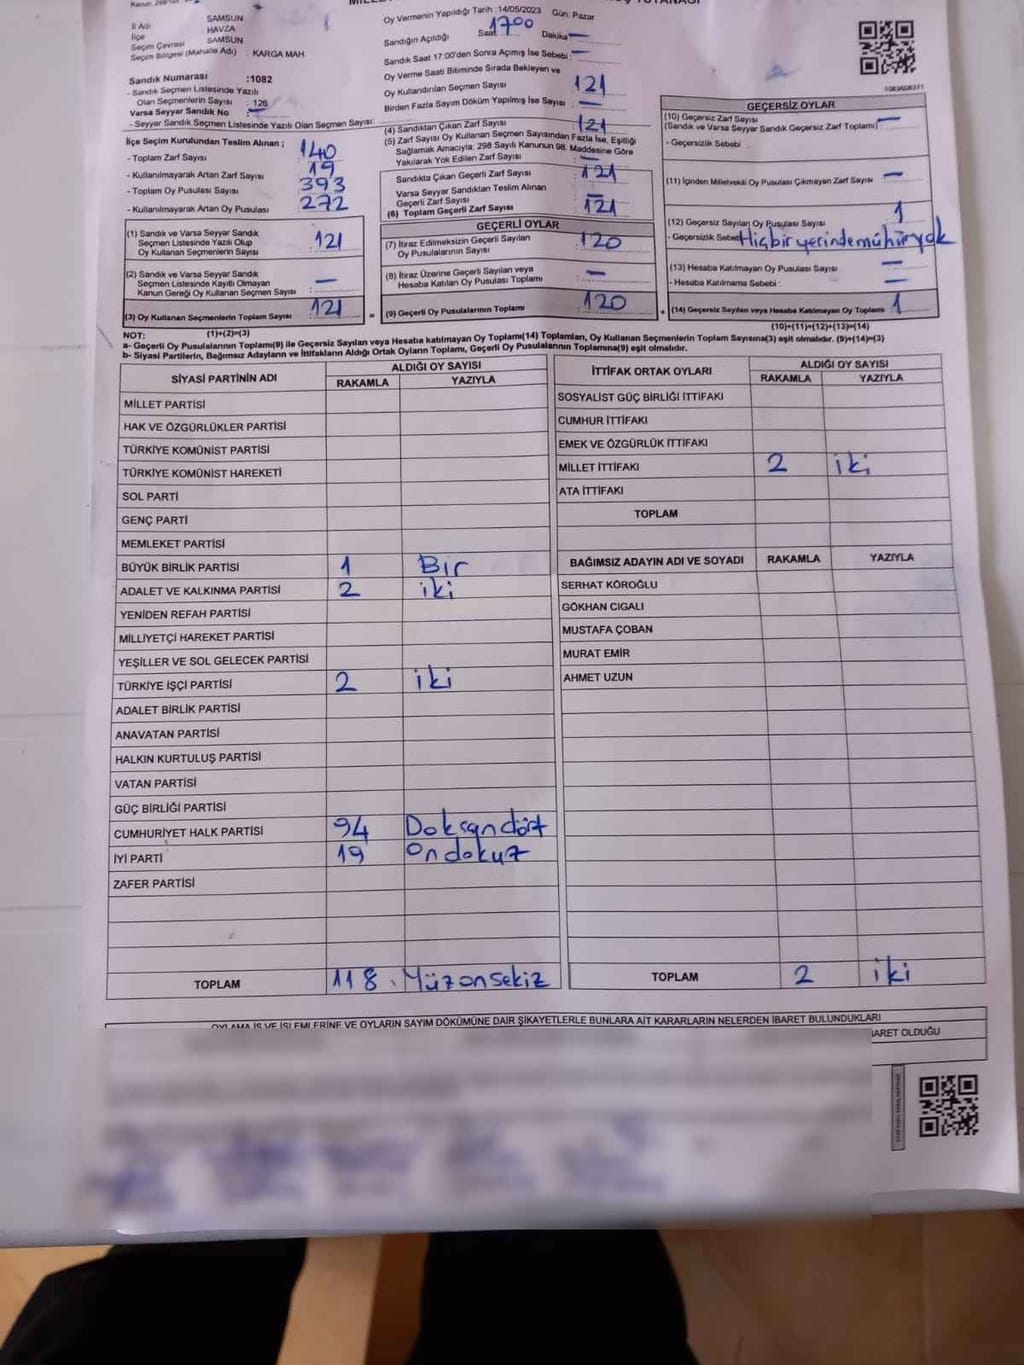 İl Adı SAMSUN
İlçe HAVZA
Seçim Çevresi SAMSUN
Seçim Bölgesi (Mahalle Adı) : KARGA MAH
Sandık Numarası :1082
- Sandık Seçmen Listesinde Yazılı
Olan Seçmenlerin Sayısı : 126
Varsa Seyyar Sandık No —
- Seyyar Sandık Seçmen Listesinde Yazılı Olan Seçmen Sayısı:
İlçe Seçim Kurulundan Teslim Alınan ;
- Toplam Zarf Sayısı 140
- Kullanılmayarak Artan Zarf Sayısı 19
- Toplam Oy Pusulası Sayısı 393
- Kullanılmayarak Artan Oy Pusulası 272
(1) Sandık ve Varsa Seyyar Sandık
Seçmen Listesinde Yazılı Olup
Oy Kullanan Seçmenlerin Sayısı 121
(2) Sandık ve Varsa Seyyar Sandık
Seçmen Listesinde Kayıtlı Olmayan
Kanun Gereği Oy Kullanan Seçmen Sayısı : —
(3) Oy Kullanan Seçmenlerin Toplam Sayısı 121
(1)+(2)=(3)
Oy Vermenin Yapıldığı Tarih :14/05/2023 Gün: Pazar
Sandığın Açıldığı Saat 1700 Dakika —
Sandık Saat 17:00'den Sonra Açımış İse Sebebi : —
Oy Verme Saati Bitiminde Sırada Bekleyen ve
Oy Kullandırılan Seçmen Sayısı 121
Birden Fazla Sayım Döküm Yapılmış İse Sayısı : —
(4) Sandıktan Çıkan Zarf Sayısı 121
(5) Zarf Sayısı Oy Kullanan Seçmen Sayısından Fazla İse, Eşitliği
Sağlamak Amacıyla; 298 Sayılı Kanunun 98. Maddesine Göre
Yakılarak Yok Edilen Zarf Sayısı —
Sandıkta Çıkan Geçerli Zarf Sayısı 121
Varsa Seyyar Sandıktan Teslim Alınan
Geçerli Zarf Sayısı —
(6) Toplam Geçerli Zarf Sayısı 121
GEÇERLİ OYLAR
(7) İtiraz Edilmeksizin Geçerli Sayılan
Oy Pusulalarının Sayısı 120
(8) İtiraz Üzerine Geçerli Sayılan veya
Hesaba Katılan Oy Pusulası Toplamı —
(9) Geçerli Oy Pusulalarının Toplamı 120
GEÇERSİZ OYLAR
(10) Geçersiz Zarf Sayısı
(Sandık ve Varsa Seyyar Sandık Geçersiz Zarf Toplamı) —
- Geçersizlik Sebebi
(11) İçinden Milletvekili Oy Pusulası Çıkmayan Zarf Sayısı —
(12) Geçersiz Sayılan Oy Pusulası Sayısı 1
- Geçersizlik Sebebi Hiçbir yerinde mühür yok
(13) Hesaba Katılmayan Oy Pusulası Sayısı —
- Hesaba Katılmama Sebebi : —
(14) Geçersiz Sayılan veya Hesaba Katılmayan Oy Toplamı 1
(10)+(11)+(12)+(13)=(14)
NOT:
a- Geçerli Oy Pusulalarının Toplamı(9) ile Geçersiz Sayılan veya Hesaba katılmayan Oy Toplamı(14) Toplamları, Oy Kullanan Seçmenlerin Toplam Sayısına(3) eşit olmalıdır. (9)+(14)=(3)
b- Siyasi Partilerin, Bağımsız Adayların ve İttifakların Aldığı Ortak Oyların Toplamı, Geçerli Oy Pusulalarının Toplamına(9) eşit olmalıdır.
SİYASİ PARTİNİN ADI ALDIĞI OY SAYISI
RAKAMLA YAZIYLA
MİLLET PARTİSİ
HAK VE ÖZGÜRLÜKLER PARTİSİ
TÜRKİYE KOMÜNİST PARTİSİ
TÜRKİYE KOMÜNİST HAREKETİ
SOL PARTİ
GENÇ PARTİ
MEMLEKET PARTİSİ
BÜYÜK BİRLİK PARTİSİ 1 Bir
ADALET VE KALKINMA PARTİSİ 2 iki
YENİDEN REFAH PARTİSİ
MİLLİYETÇİ HAREKET PARTİSİ
YEŞİLLER VE SOL GELECEK PARTİSİ
TÜRKİYE İŞÇİ PARTİSİ 2 iki
ADALET BİRLİK PARTİSİ
ANAVATAN PARTİSİ
HALKIN KURTULUŞ PARTİSİ
VATAN PARTİSİ
GÜÇ BİRLİĞİ PARTİSİ
CUMHURİYET HALK PARTİSİ 94 Doksandört
İYİ PARTİ 19 Ondokuz
ZAFER PARTİSİ
TOPLAM 118 Yüzonsekiz
İTTİFAK ORTAK OYLARI ALDIĞI OY SAYISI
RAKAMLA YAZIYLA
SOSYALİST GÜÇ BİRLİĞİ İTTİFAKI
CUMHUR İTTİFAKI
EMEK VE ÖZGÜRLÜK İTTİFAKI
MİLLET İTTİFAKI 2 iki
ATA İTTİFAKI
TOPLAM
BAĞIMSIZ ADAYIN ADI VE SOYADI RAKAMLA YAZIYLA
SERHAT KÖROĞLU
GÖKHAN CIGALI
MUSTAFA ÇOBAN
MURAT EMİR
AHMET UZUN
TOPLAM 2 iki
OYLAMA İŞ VE İŞLEMLERİNE VE OYLARIN SAYIM DÖKÜMÜNE DAİR ŞİKAYETLERLE BUNLARA AİT KARARLARIN NELERDEN İBARET BULUNDUKLARI
BARET OLDUĞU